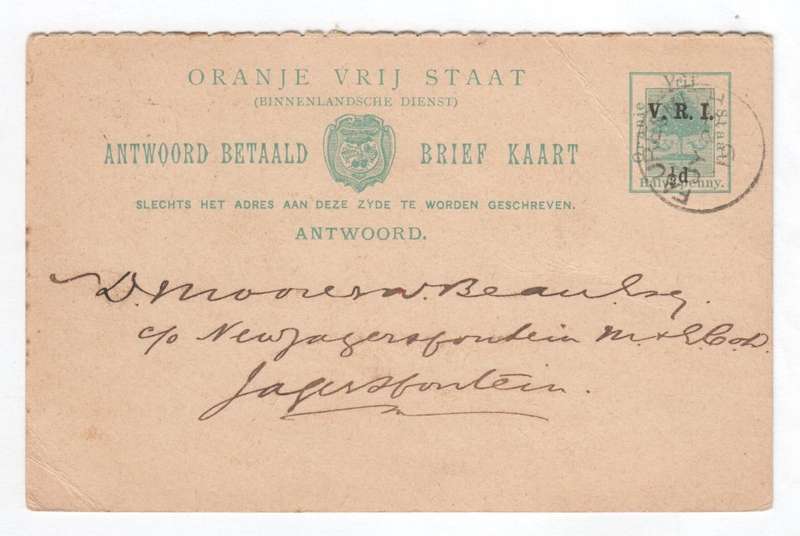 ORANJE VRIJ STAAT
(BINNENLANDSCHE DIENST)
ANTWOORD BETAALD BRIEF KAART
SLECHTS HET ADRES AAN DEZE ZYDE TE WORDEN GESCHREVEN.
ANTWOORD.
Oranje Vrij Staat
V. R. I.
½d
Half Penny.
D. Moorrees Beau Esq.
c/o New Jagersfontein M & E Co Ld.
Jagersfontein.